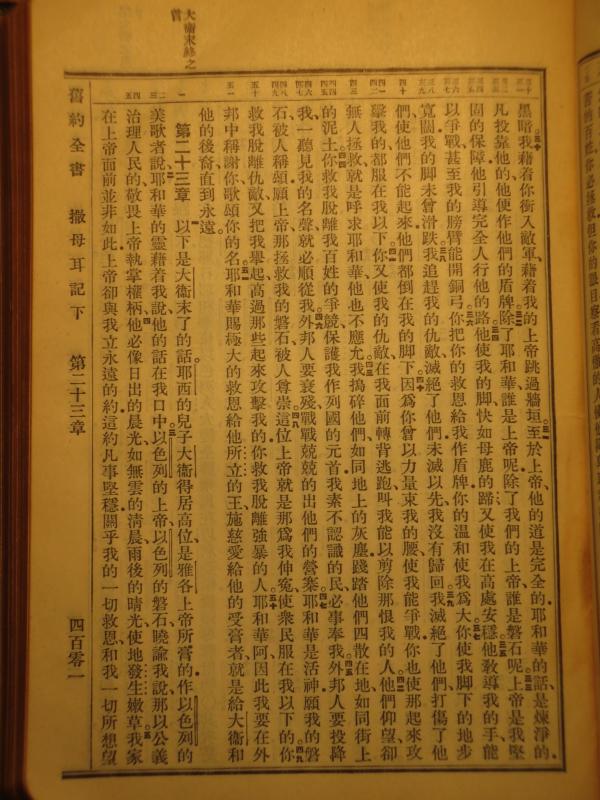 黑暗我藉着你衝入敵軍、藉着我的上帝跳過牆垣。至於上帝、他的道是完全的、耶和華的話是煉淨的、
凡投靠他的、他便作他們的盾牌。除了耶和華、誰是上帝呢、除了我們的上帝、誰是磐石呢。上帝是我堅
固的保障、他引導完全人行他的路。他使我的脚快如母鹿的蹄、又使我在高處安穩。他教導我的手能
以爭戰、甚至我的膀臂能開銅弓。你把你的救恩給我作盾牌、你的溫和使我爲大。你使我脚下的地步
寬闊、我的脚未曾滑跌。我追趕我的仇敵、滅絕了他們、未滅以先、我沒有歸回。我滅絕了他們、打傷了他
們、使他們不能起來、他們都倒在我的脚下。因爲你曾以力量束我的腰、使我能爭戰、你也使那起來攻
擊我的、都服在我以下。你又使我的仇敵在我面前轉背逃跑、叫我能以剪除那恨我的人。他們仰望、卻
無人拯救、就是呼求耶和華、他也不應允。我搗碎他們如同地上的灰塵、踐踏他們、四散在地、如同街上
的泥土。你救我脫離我百姓的爭競、保護我作列國的元首、我素不認識的民必事奉我。外邦人要投降
我、一聽見我的名聲、就必順從我。外邦人要衰殘、戰戰兢兢的出他們的營寨。耶和華是活神、願我的磐
石被人稱頌、願上帝那拯救我的磐石被人尊崇。這位上帝、就是那爲我伸冤、使衆民服在我以下的。你
救我脫離仇敵、又把我舉起、高過那些起來攻擊我的、你救我脫離強暴的人。耶和華阿、因此我要在外
邦中稱謝你、歌頌你的名。耶和華賜極大的救恩給他所立的王、施慈愛給他的受膏者、就是給大衞和
他的後裔、直到永遠。
第二十三章 以下是大衞末了的話、耶西的兒子大衞得居高位、是雅各上帝所膏的、作以色列的
美歌者說、耶和華的靈藉着我說、他的話在我口中。以色列的上帝、以色列的磐石曉諭我說、那以公義
治理人民的、敬畏上帝執掌權柄、他必像日出的晨光、如無雲的清晨、雨後的晴光、使地發生嫩草。我家
在上帝面前並非如此、上帝卻與我立永遠的約、這約凡事堅穩、關乎我的一切救恩、和我一切所想望
大衞末終之言
舊約全書 撒母耳記下 第二十三章 四百零一